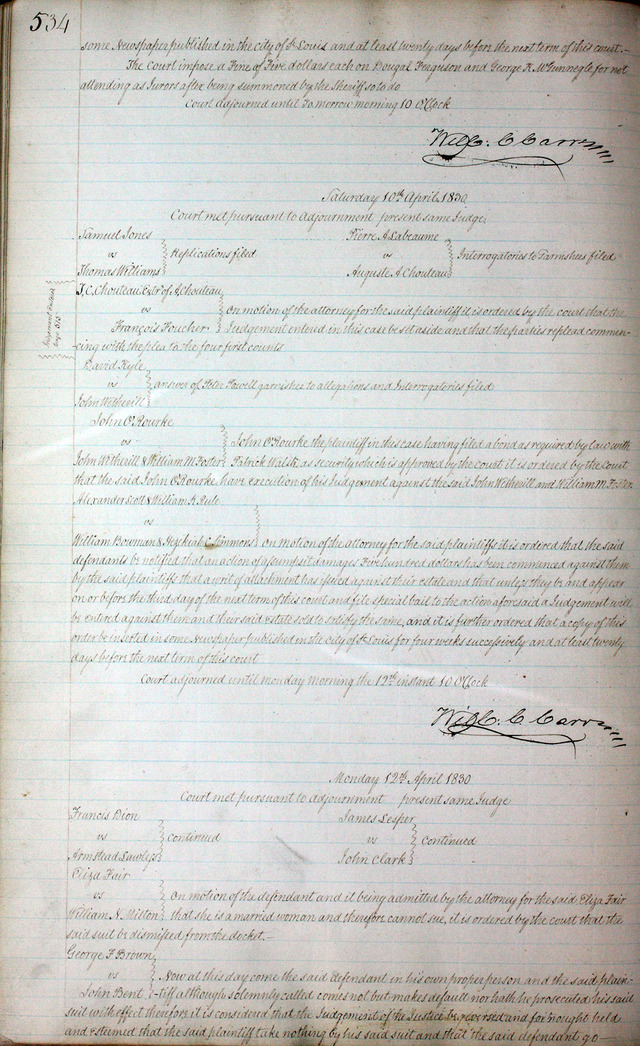 534
some Newspaper published in the city of St Louis and at least twenty days before the next term of this court.—
The Court impose a Fine of Five dollars each on Dougal Ferguson and George K. McGunnegle for not
attending as Jurors after being summoned by the Sheriff so to do
Court adjourned until Tomorrow morning 10 O'Clock
Will: C. Carr
Saturday 10th April, 1830
Court met pursuant to Adjournment present same Judge.
Samuel Jones
vs
Thomas Williams
Replications filed
Pierre A Labeaume
vs
Auguste A Chouteau
Interrogatories to Garnishees filed
Page 513
T. C. Chouteau Extr of A Chouteau
vs
François Foucher
on motion of the attorney for the said plaintiff it is ordered by the court that the
Judgement entered in this case be set aside and that the parties replead commen-
cing with the plea to the four first counts
David Kyle
vs
John Witherill
answer of Peter Powell garnishee to allegations and Interrogatories filed
John O'Rourke
vs
John Witherill & William M Foster
John O'Rourke the plaintiff in this case having filed a bond as required by law with
Patrick Walsh as security which is approved by the court it is ordered by the Court
that the said John O'Rourke have execution of his Judgement against the said John Witherill and William M. Foster
Alexander Scott & William K Rule
vs
William Bowman & Hezkiah C. Simmons
on motion of the attorney for the said plaintiffs it is ordered that the said
defendants be notified that an action of assumpsit damages Five hundred dollars has been commenced against them
by the said plaintiffs that a writ of attachment has issued against their estate and that unless they be and appear
on or before the third day of the next term of this court and file special bail to the action aforesaid a Judgement will
be entered against them and their said estate sold to satisfy the same, and it is further ordered that a copy of this
order be inserted in some Newspaper published in the city of St Louis for four weeks successively and at least twenty
days before the next term of this court
Court adjourned until monday morning the 12th instant 10 O'Clock
Will: C. Carr
Monday 12th April 1830
Court met pursuant to adjournment present same Judge
Francis Dion
vs
Armstead Lawless
continued
James Lesper
vs
John Clark
continued
Eliza Fair
vs
William N. Milton
on motion of the defendant and it being admitted by the attorney for the said Eliza Fair
that she is a married woman and therefore cannot sue, it is ordered by the court that the
said suit be dismissed from the docket.—
George F. Brown
vs
John Bent
Now at this day come the said defendant in his own proper person and the said plain-
-tiff although solemnly called comes not but makes default nor hath he prosecuted his said
suit with effect therefore it is considered that the Judgement of the Justice be reversed and for nought held
and esteemed that the said plaintiff take nothing by his said suit and that the said defendant go—